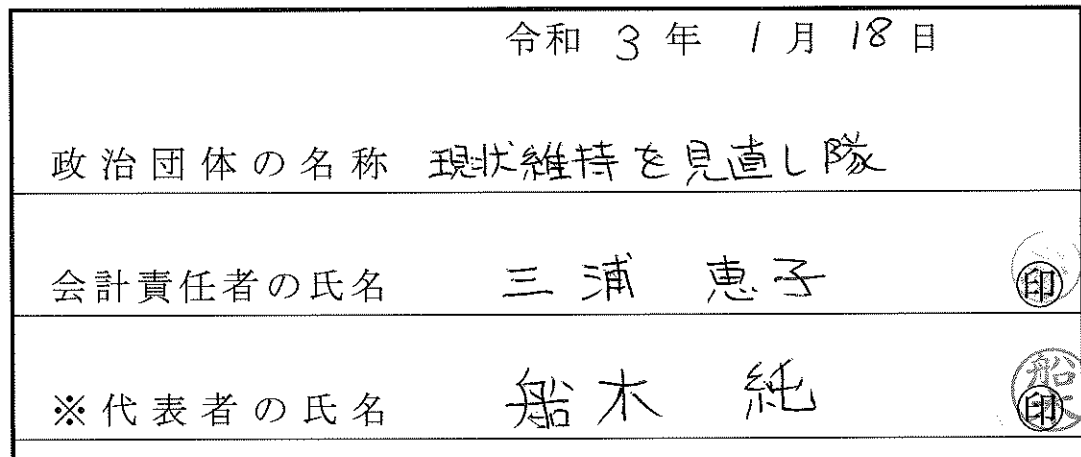 令和 3 年 1 月 18 日
政治団体の名称 現状維持を見直し隊
会計責任者の氏名 三浦 恵子 印
※代表者の氏名 船木 純 印
船木